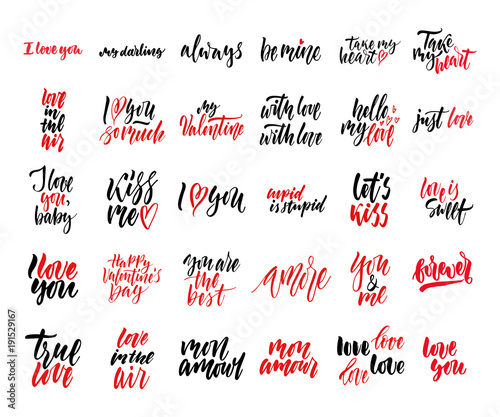 I love you
my darling
always
be mine
take my
heart
Take
my heart
love
in the
air
I you
so much
my
Valentine
with love
with love
hello
my love
just love
I love
you,
baby
Kiss
me
I you
cupid
is stupid
Let's
Kiss
love is
sweet
I love
you
Happy
Valentine's
Day
you are
the
best
amore
You
&
me
forever
true
love
love
in the
air
mon
amour
mon
amour
love love
love love
love
you
191529167